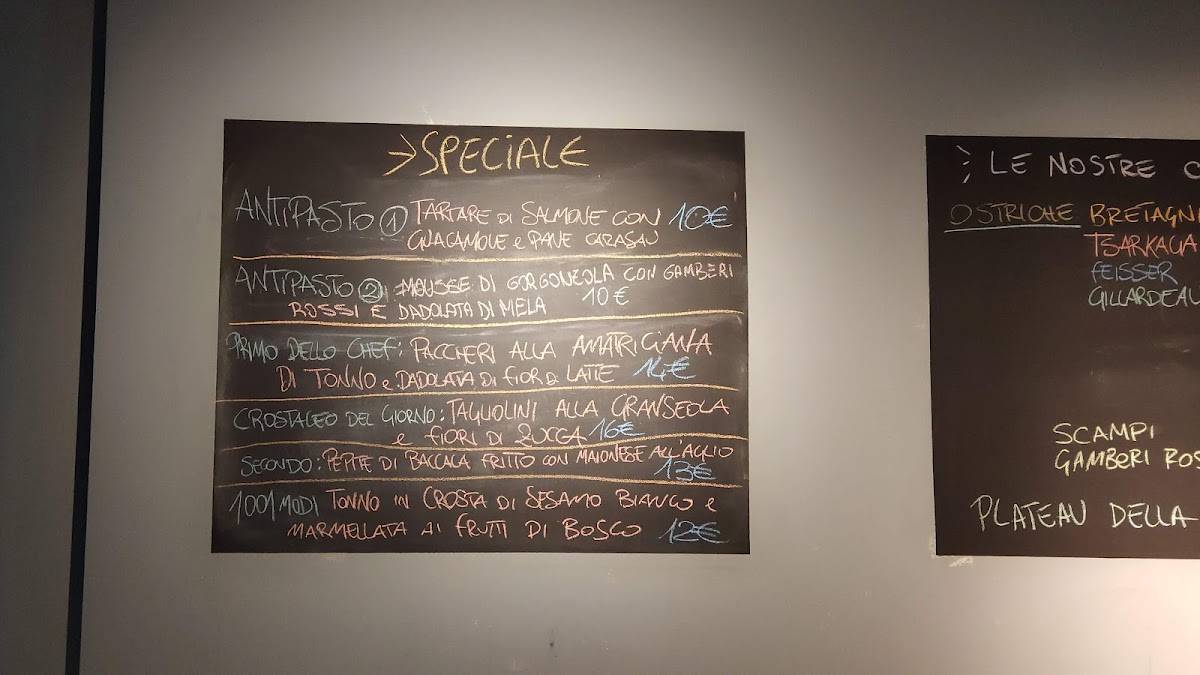 →SPECIALE
ANTIPASTO 1 TARTARE DI SALMONE CON 10€
GUACAMOLE e PANE CARASAU
ANTIPASTO 2 MOUSSE DI GORGONZOLA CON GAMBERI
ROSSI E DADOLATA DI MELA 10€
PRIMO DELLO CHEF: PACCHERI ALLA AMATRICIANA
DI TONNO e DADOLATA DI FIOR DI LATTE 14€
CROSTACEO DEL GIORNO: TAGLIOLINI ALLA GRANSEOLA
e FIORI DI ZUCCA 16€
SECONDO: PEPITE DI BACCALA FRITTO CON MAIONESE ALL'AGLIO
13€
1001 MODI TONNO IN CROSTA DI SESAMO BIANCO e
MARMELLATA AI FRUTTI DI BOSCO 12€
LE NOSTRE C
OSTRICHE BRETAGN
TSARKAIA
FEISSER
GILLARDEAU
SCAMPI
GAMBERI ROS
PLATEAU DELLA